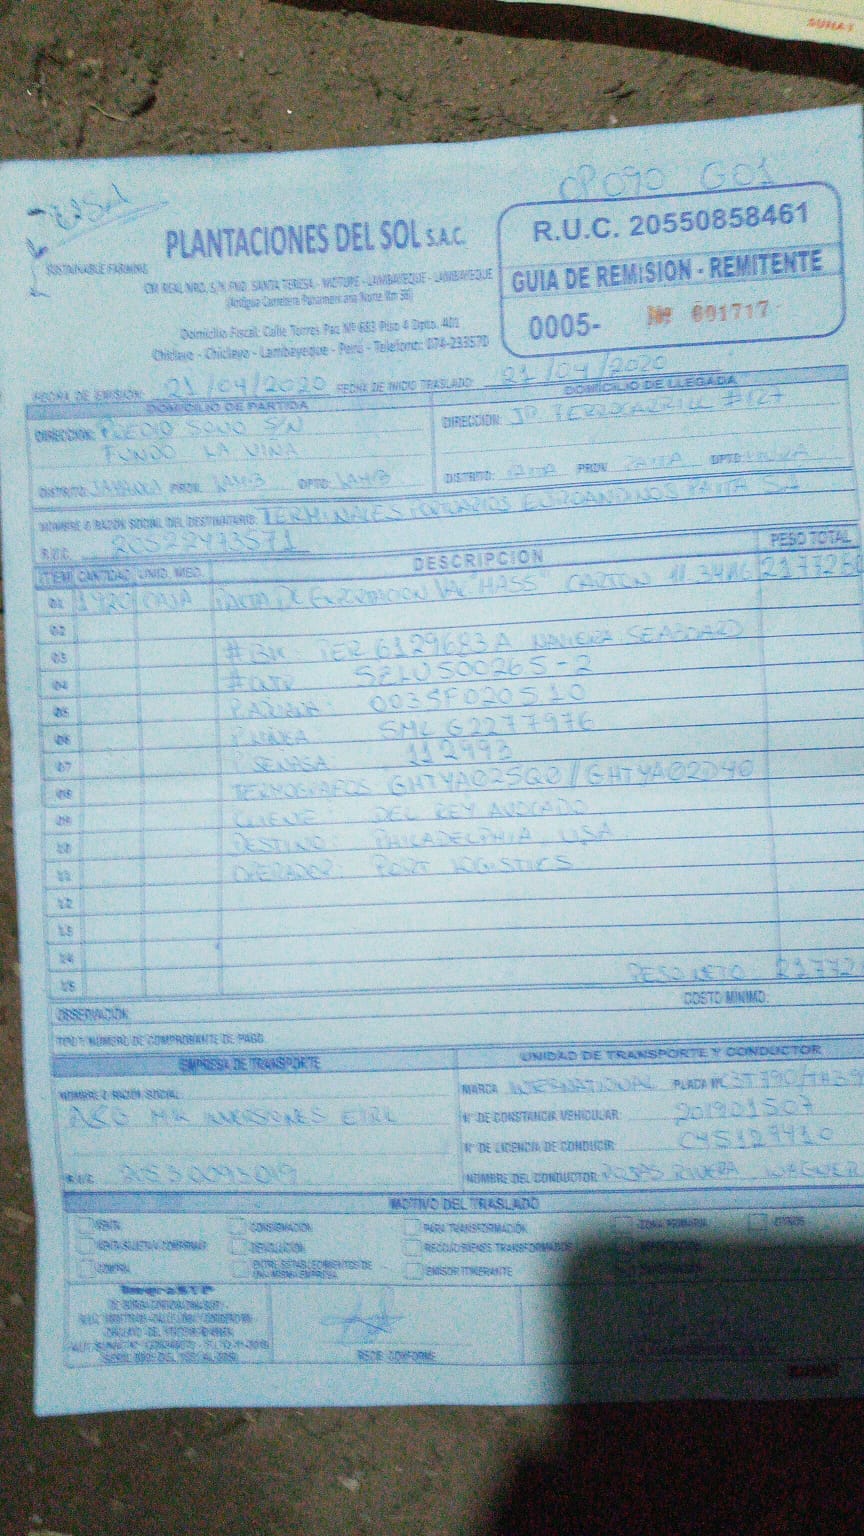 SUNAT
OP090 G01
PLANTACIONES DEL SOL S.A.C.
SUSTAINABLE FARMING
CM REAL NRO. S/N FND. SANTA TERESA - MOTUPE - LAMBAYEQUE - LAMBAYEQUE
(Antigua Carretera Panamericana Norte Km 36)
Domicilio Fiscal: Calle Torres Paz Nº 683 Piso 4 Dpto. 401
Chiclayo - Chiclayo - Lambayeque - Perú - Telefono: 074-233570
R.U.C. 20550858461
GUIA DE REMISION - REMITENTE
0005- Nº 001717
FECHA DE EMISIÓN: 21/04/2020 FECHA DE INICIO TRASLADO: 21/04/2020
DOMICILIO DE PARTIDA
DIRECCIÓN: PREDIO SONO S/N
FUNDO LA VIÑA
DISTRITO: JAYANCA PROV. LAMB DPTO: LAMB
DOMICILIO DE LLEGADA
DIRECCIÓN: JR FERROCARRILL #127
DISTRITO: PAITA PROV. PAITA DPTO: PIURA
NOMBRE O RAZÓN SOCIAL DEL DESTINATARIO: TERMINALES PORTUARIOS EUROANDINOS PAITA SA
R.U.C. 20522473571
ITEM CANTIDAD UNID. MED. DESCRIPCION PESO TOTAL
01 1920 CAJA PALTA DE EXPORTACION VAR "HASS" CARTON 11.34KG
02
03 #BK: PER6129683A NAVIERA SEABOARD
04 #CNTR SZLU500265-2
05 P. ADUANA: 003SF020510
06 P. LINEA: SML G2277976
07 P SENASA 112993
08 TERMOGRAFOS GHTYA025Q0 // GHTYA02D40
09 CLIENE: DEL REY AVOCADO
10 DESTINO: PHILADELPHIA USA
11 OPERADOR: PORT LOGISTICS
12
13
14
15 PESO NETO 21772
OBSERVACIÓN: COSTO MINIMO:
TIPO Y NÚMERO DE COMPROBANTE DE PAGO:
EMPRESA DE TRANSPORTE
NOMBRE O RAZÓN SOCIAL:
ASG MK INVERSIONES EIRL
R.U.C. 20530093019
UNIDAD DE TRANSPORTE Y CONDUCTOR
MARCA INTERNATIONAL PLACA
Nº DE CONSTANCIA VEHICULAR: 201901507
Nº DE LICENCIA DE CONDUCIR: C45127410
NOMBRE DEL CONDUCTOR: ROJAS RIVERA WAGNER
MOTIVO DEL TRASLADO
VENTA CONSIGNACIÓN PARA TRANSFORMACIÓN ZONA PRIMARIA OTROS
VENTA SUJETA A CONFIRMAR DEVOLUCIÓN RECOJO BIENES TRANSFORMADOS
COMPRA ENTRE ESTABLECIMIENTOS DE UNA MISMA EMPRESA EMISOR ITINERANTE
RECIBI CONFORME